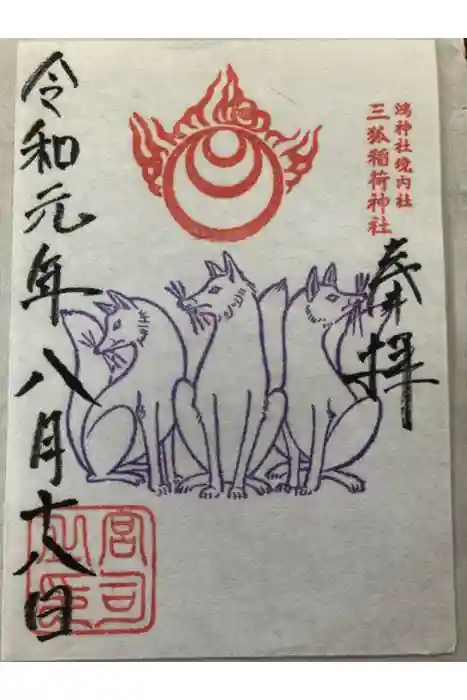 鴻神社境内社
三狐稲荷神社
奉拝
令和元年八月十八日
宮司之印